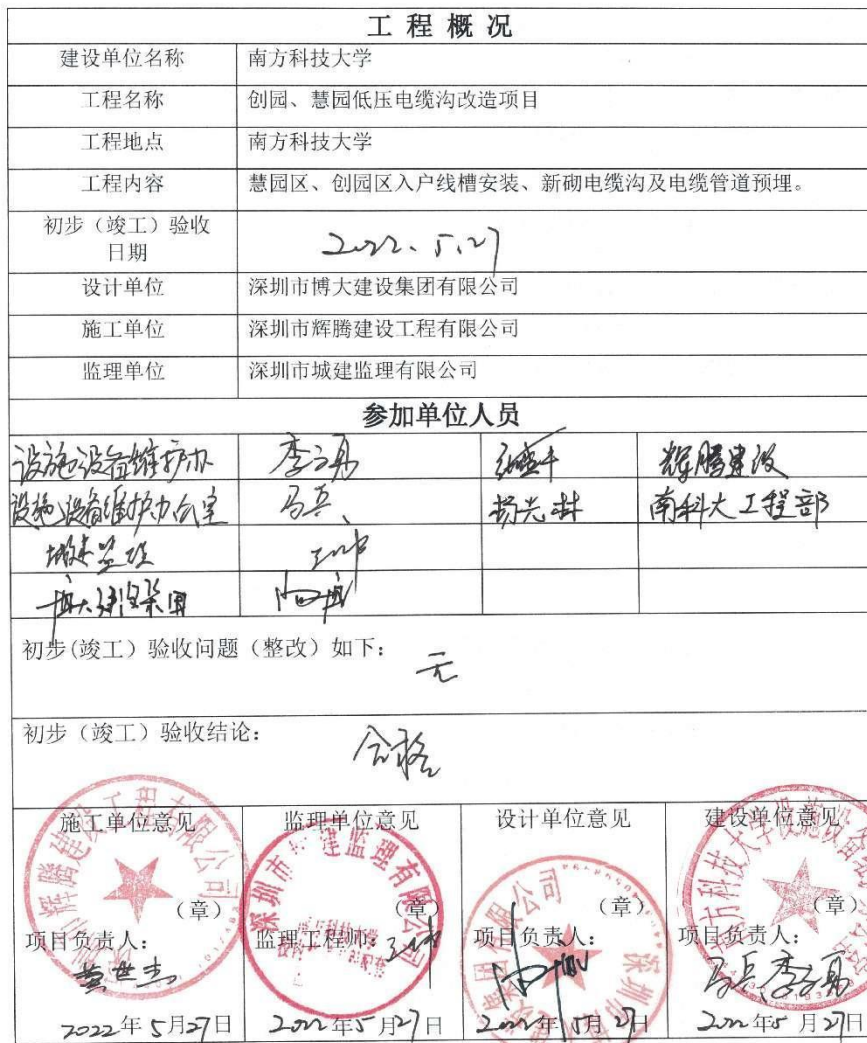 工程概况
建设单位名称 南方科技大学
工程名称 创园、慧园低压电缆沟改造项目
工程地点 南方科技大学
工程内容 慧园区、创园区入户线槽安装、新砌电缆沟及电缆管道预埋。
初步（竣工）验收
日期 2022.5.27
设计单位 深圳市博大建设集团有限公司
施工单位 深圳市辉腾建设工程有限公司
监理单位 深圳市城建监理有限公司
参加单位人员
设施设备维护办 辉腾建设
设施设备维护办公室 马兵 杨光 南科大工程部
城建监理
博大建设集团
初步(竣工）验收问题（整改）如下：
无
初步（竣工）验收结论：
合格
施工单位意见 监理单位意见 设计单位意见 建设单位意见
（章） （章） （章） （章）
项目负责人： 监理工程师： 项目负责人： 项目负责人：
黄世杰 马兵
2022年5月27日 2022年5月27日 2022年5月27日 2022年5月27日